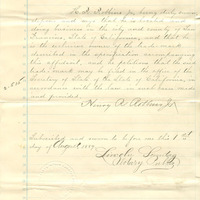 H. A. Williams Jr. being duly sworn
deposes and says that he is located and
doing business in the city and county of San
Francisco, State of California, and that he
is the exclusive owner of the trade mark
described in the accompanying
this affidavit, and he petitions that the said
trade mark may be filed in the office of the
Secretary of State of the State of California, in
accordance with the law in such cases made
and provided.
Henry A. Williams Jr.
Subscribed and sworn to before me this 1st
day of August 1889
Notary Public